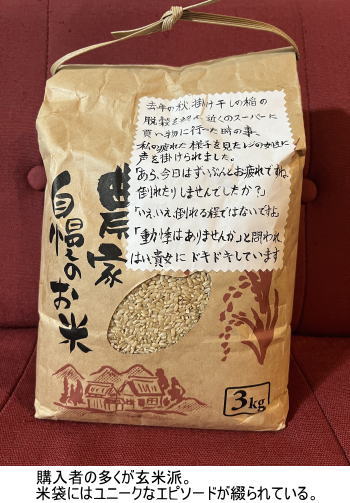 去年の秋、掛け干しの稲の
脱穀を終え、近くのスーパーに
買い物に行った時の事、
私の疲れた様子を見たレジの女性に
声を掛けられました。
「あら、今日はずいぶんとお疲れですね。
倒れたりしませんでしたか?」
「いえ、いえ、倒れる程ではないですよ」
「動悸はありませんか」と問われ
はい、貴女に ドキドキしています
農家
自慢のお米
3kg
購入者の多くが玄米派。
米袋にはユニークなエピソードが綴られている。